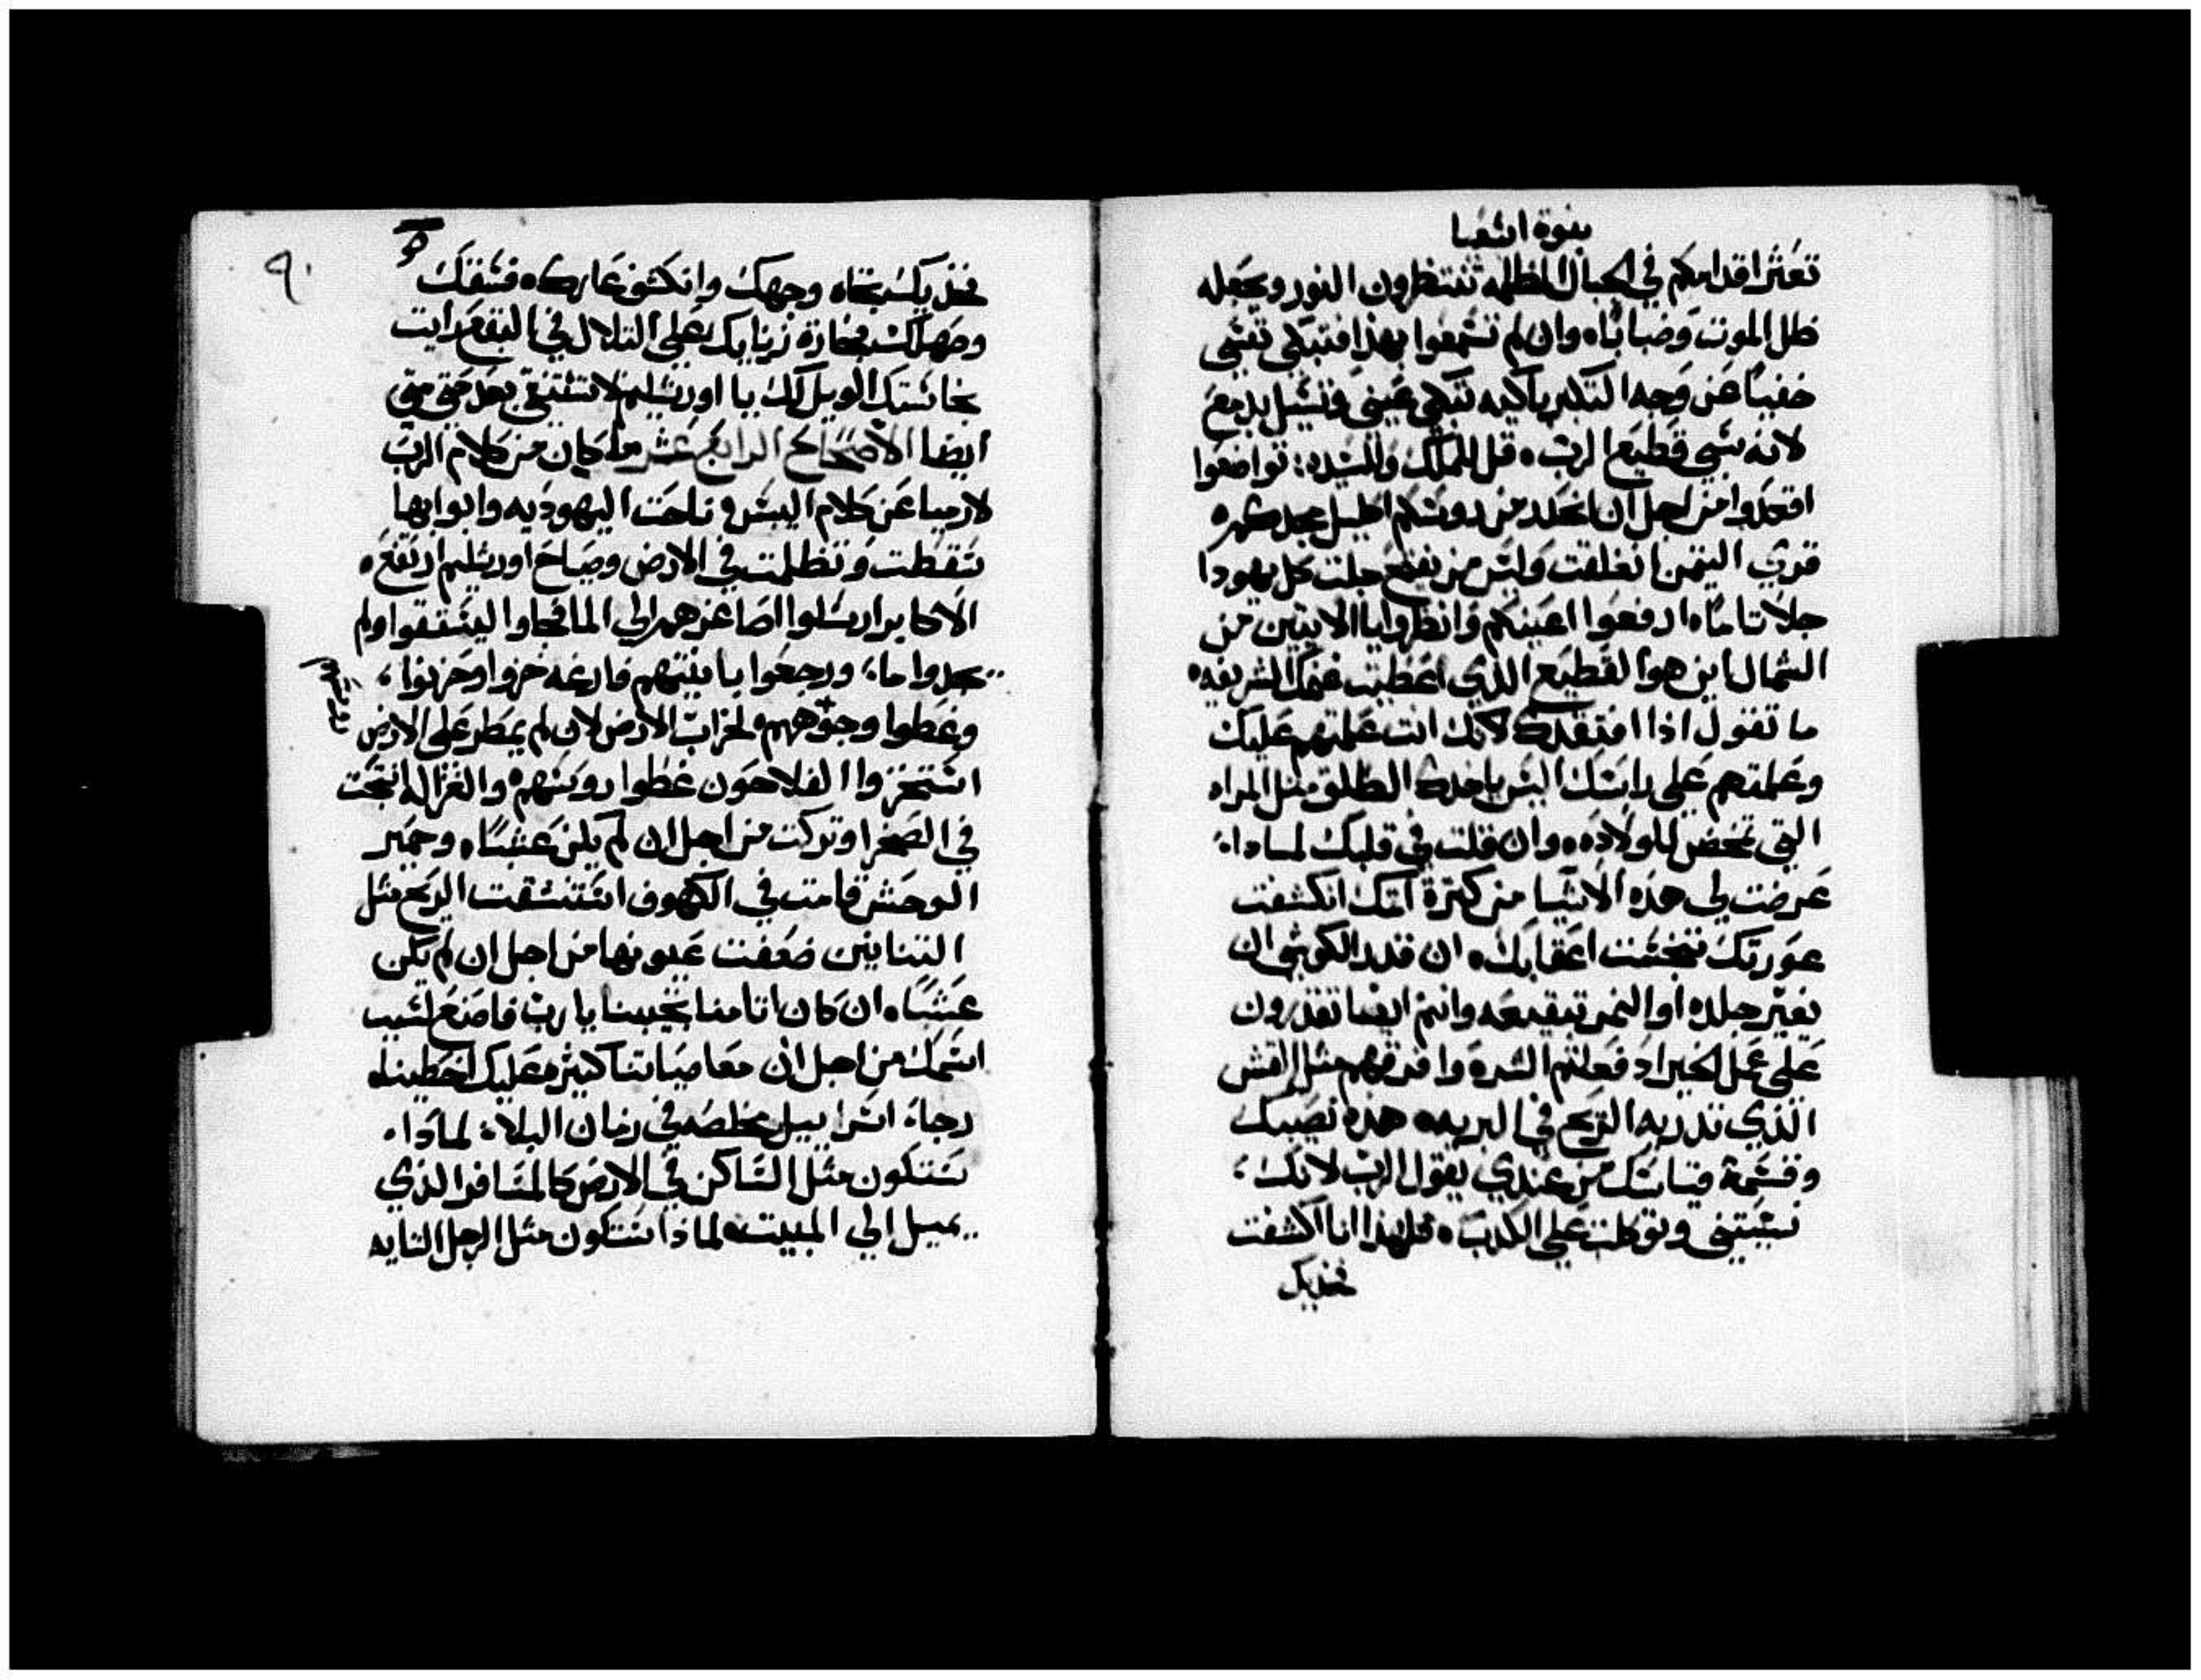 بنوة اشعيا
تعثر اقدامكم في الجبال المظلمه تنتظرون النور ويجعله
ظل الموت وضبابًا، وان لم تسمعوا بهذا فتبكي نفسي
خفيا عن وجه التكبر باكيه تبكي عيني وتسيل بدمع
لانه سبي قطيع الرب، قل للملك وللسيده: تواضعوا
اقعدوا من اجل ان انحدر من روسكم اكليل مجدكم
قري التيمن انغلقت وليس من يفتح جليت كل يهودا
جلا تامًا، ارفعوا اعينكم وانظروا يا الاتيين من
الشمال اين هو القطيع الذي اعطيت غنمك الشريفه،
ما تقول اذا افتقدك لانك انت علمتهم عليك
وعلمتهم على راسك اليس ياخدك الطلق مثل المراه
التي تمخض للولاده، وان قلت في قلبك لمادا
عرضت لي هذه الاشيا من كترة اتمك انكشفت
عورتك تنجست اعقابك، ان قدر الكوشي ان
يغير جلده او النمر تبقيعه وانتم ايضا تقدرون
على عمل الخير اذ فعلتم الشر، وافرقهم مثل القش
الذي تدريه الريح في البريه، هذه نصيبك
وقسمة قياستك من عندي يقول الرب لانك
نسيتني وتوكلت على الكدب، فلهذا انا اكشفت
فخديك
٩٠
فخديك تجاه وجهك وانكشف عارك، فسقك
وصهيلك فخارة زناك على التلال في البقع رايت
نجاستك الويل لك يا اورشليم لا تتنقي بعد حتي متي
ايضا الاصحاح الرابع عشر ما كان من كلام الرب
لارميا عن كلام اليبس، ناحت اليهوديه وابوابها
تنقطت وتظلمت في الارض وصياح اورشليم ارتفع،
الاكابر ارسلوا اصاغرهم الي الما فجاوا ليستقوا ولم
يجدوا ما، ورجعوا بانيتهم فارغه خزوا وحزنوا،
وغطوا وجوههم، لخراب الارض لان لم يمطر على الارض
استخزوا الفلاحون غطوا روسهم، والغزاله انتجت
في الصحرا وتركت من اجل ان لم يكن عشبًا، وحمير
الوحش قامت في الكهوف استنشقت الريح مثل
التنانين ضعفت عيونها من اجل ان لم يكن
عشبًا، ان كان اتامنا تجيبنا يا رب فاصنع لسبب
اسمك من اجل ان معاصياتنا كثيره عليك اخطينا،
رجاء اسراييل مخلصه في زمان البلاء، لمادا
ستكون مثل الساكن في الارض كالمسافر الذي
يميل الي المبيت، لماذا ستكون مثل الرجل التايه